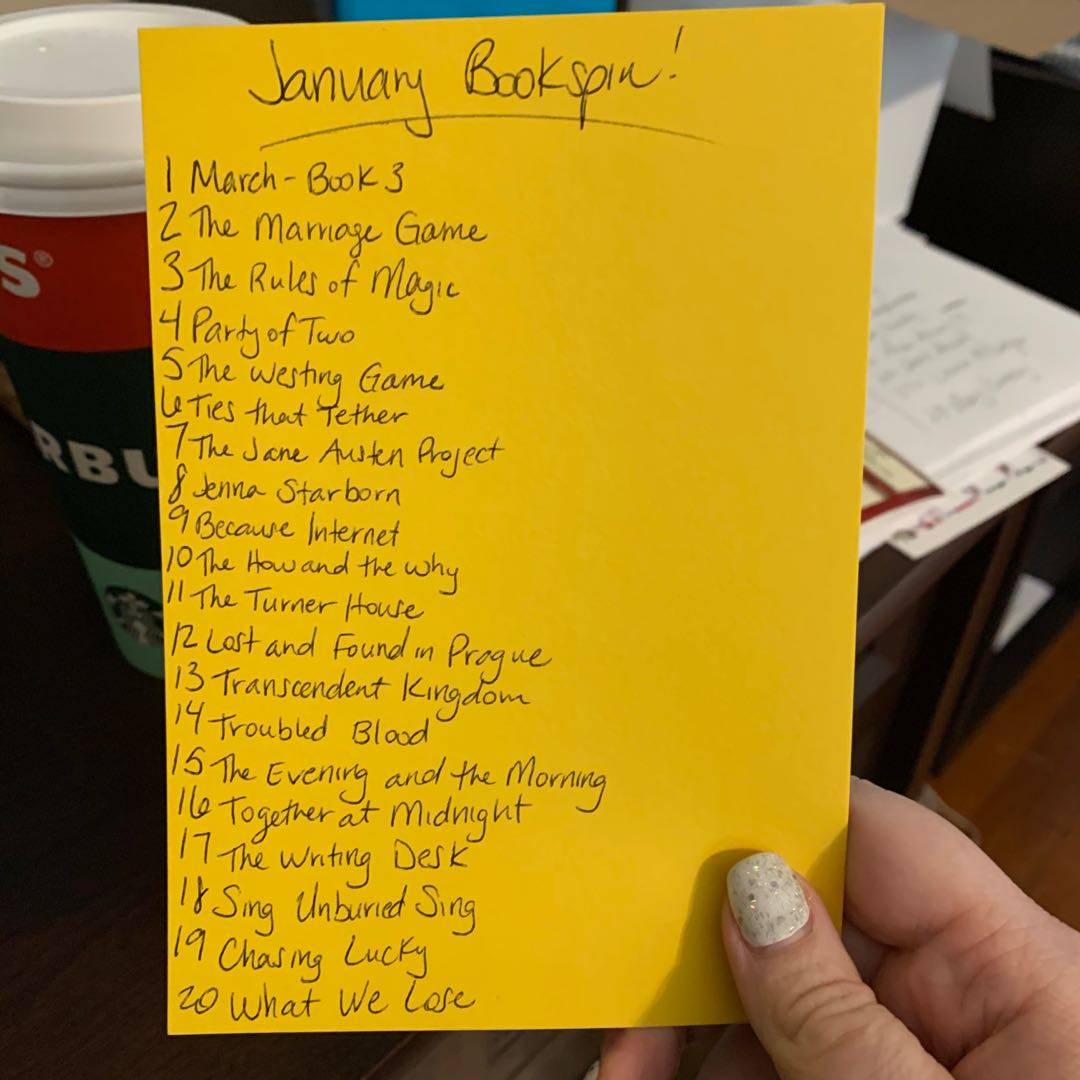 January Bookspin!
1 March - Book 3
2 The Marriage Game
3 The Rules of Magic
4 Party of Two
5 The Westing Game
6 Ties that Tether
7 The Jane Austen Project
8 Jenna Starborn
9 Because Internet
10 The How and the Why
11 The Turner House
12 Lost and Found in Prague
13 Transcendent Kingdom
14 Troubled Blood
15 The Evening and the Morning
16 Together at Midnight
17 The Writing Desk
18 Sing Unburied Sing
19 Chasing Lucky
20 What We Lose
S®
RBU